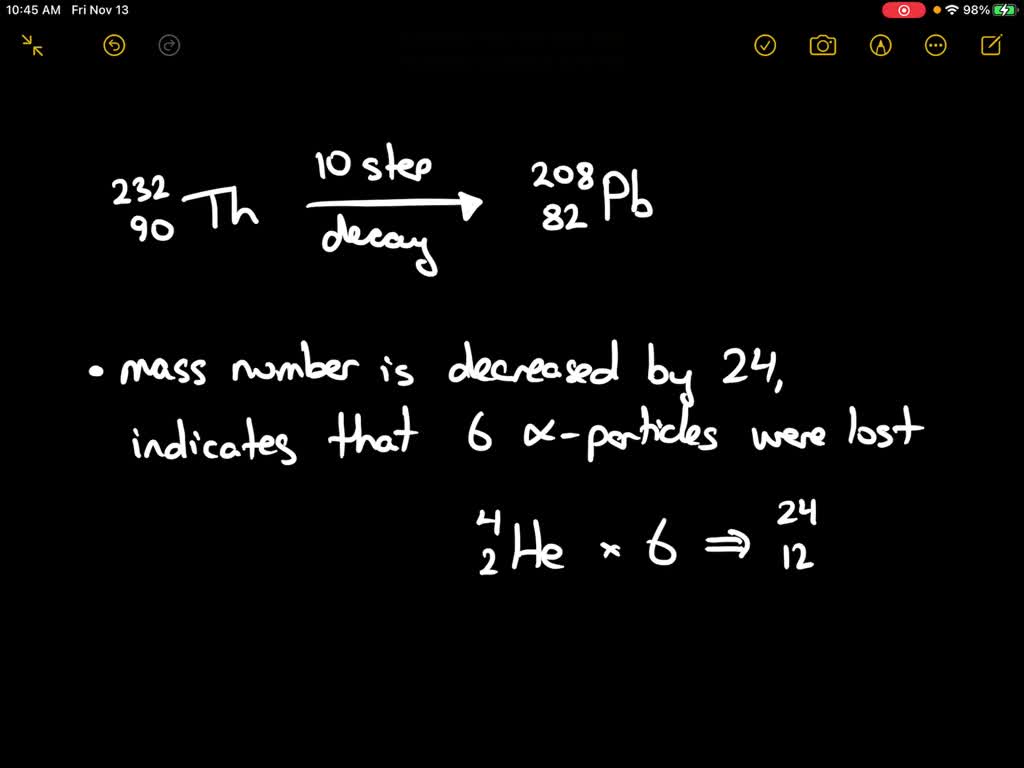 10:45 AM Fri Nov 13 98%
10 step
232 90 Th → 208 82 Pb
decay
• mass number is decreased by 24,
indicates that 6 α-particles were lost
4 2 He × 6 ⇒ 24 12